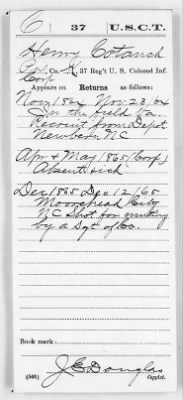 C 37 U.S.C.T.
Henry Cotanch
Pvt, Co. K, 37 Reg't U. S. Colored Inf.
Corp
Appears on Returns as follows:
Nov 1864 Nov 23, 64
In the field Va.
Recruit from Depot
Newbern NC
Apr & May 1865 (Corp)
Absent sick
Dec 1865 Dec 12/65
Moorehead City
NC Shot for mutiny
by a Sgt of Co.
Book mark:
(546) J. E. Douglas
Copyist.